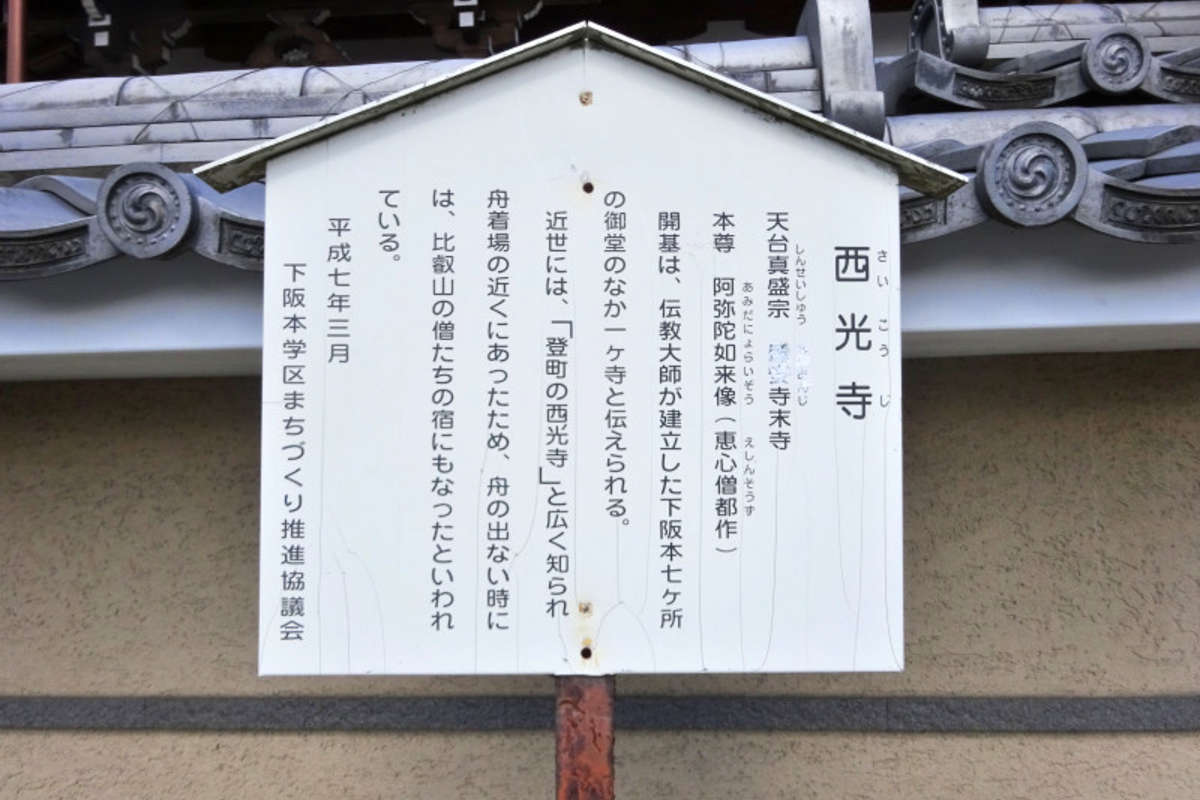 西光寺
さいこうじ
天台真盛宗 寺末寺
しんせいしゅう
本尊 阿弥陀如来像(恵心僧都作)
あみだにょらいぞう えしんそうず
開基は、伝教大師が建立した下阪本七ヶ所
の御堂のなか一ヶ寺と伝えられる。
近世には、「登町の西光寺」と広く知られ
舟着場の近くにあったため、舟の出ない時に
は、比叡山の僧たちの宿にもなったといわれ
ている。
平成七年三月
下阪本学区まちづくり推進協議会